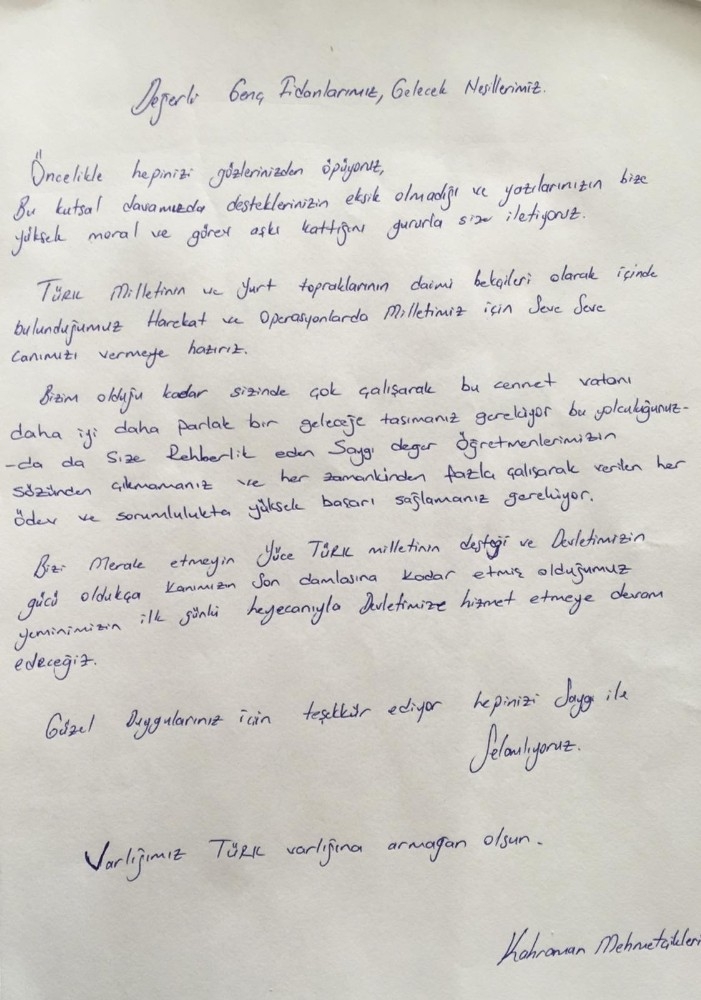 Değerli Genç Fidanlarımız, Gelecek Nesillerimiz.
Öncelikle hepinizi gözlerinizden öpüyoruz,
Bu kutsal davamızda desteklerinizin eksik olmadığı ve yazılarınızın bize
yüksek moral ve görev aşkı kattığını gururla size iletiyoruz.
TÜRK Milletinin ve Yurt topraklarının daimi bekçileri olarak içinde
bulunduğumuz Harekat ve Operasyonlarda Milletimiz için Seve Seve
canımızı vermeye hazırız.
Bizim olduğu kadar sizinde çok çalışarak bu cennet vatanı
daha iyi daha parlak bir geleceğe tasımanız gerekiyor bu yolculuğunuz-
-da da Size Rehberlik eden Saygı değer Öğretmenlerimizin
sözünden çıkmamanız ve her zamankinden fazla çalışarak verilen her
ödev ve sorumlulukta yüksek başarı sağlamanız gerekiyor.
Bizi Merak etmeyin Yüce TÜRK milletinin desteği ve Devletimizin
gücü oldukça kanımızın Son damlasına kadar etmiş olduğumuz
yeminimizin ilk günkü heyecanıyla Devletimize hizmet etmeye devam
edeceğiz.
Güzel Duygularınız için teşekkür ediyor hepinizi Saygı ile
Selamlıyoruz.
Varlığımız TÜRK varlığına armağan olsun.
Kahraman Mehmetçikleri